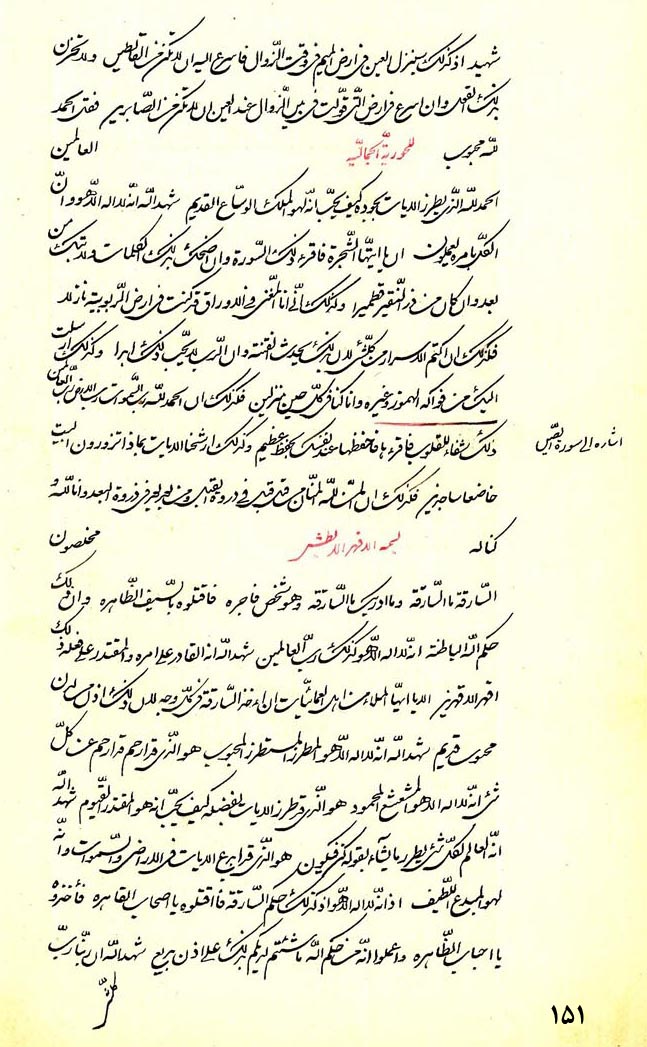 شهید اذ کذلک سینزل العین فی ارض المیم فی وقت الزوال فاسرع الیه ان لا تکونن من القانطین ولا تحزن
بذلک القول وان اسرع فی ارض التی تولت فی بین الزوال عند العین ان لا تکونن من الصابرین فقل الحمد
لله محبوب العالمین
للحوریة الجمالیة
الحمد لله الذی یطرز الایات بجوده کیف یحب انه لهو الملک الوساع القدیم شهد الله انه لا اله الا هو وان
الکل بامره لیعملون ان یا ایتها الشجرة فاقرء ذلک السورة وان اضحک بذلک الکلمات ولا تبک من
بعد وان کان من ذر النقیر قطمیرا وکذلک انی انا المغنی فی الاوراق قد کنت فی ارض الربوبیة نازلا
فکذلک ان اکتم الاسرار من کلشئ لان بذلک یحدث الفتنة وان الرب لا یحب ذلک ابدا وکذلک ارسلت
الیک من فواکه الهموز وغیره وانا کنا فی کل حین منزلین فکذلک ان الحمد لله رب السموات رب الارض رب العالمین
ذلک شفاء للقلوب فاقرء بها فاحفظها عند نفسک بحفظ عظیم وکذلک ارشحنا الایات بما ذا تزورون البیت
اشاره الی سورة
خاضعا ساجدین فکذلک ان المن لله المنان من قبل قبل فی ذروة القبل ومن بعد بعد فی ذروة البعد وانا لله و
کنا له مخلصون
بسمه الاقهر الابطش
السارقة ما السارقة وما ادریک ما السارقة وهو شخص فاجره فاقتلوه بالسیف الظاهره وان ذلک
حکم الله الباطنة انه لا اله الا هو کذلک رب العالمین شهد الله انه القادر علی امره والمقتدر علی فعله ذلک
اقهر الاقهرین الا یا ایها الملاء من اهل العمائیات ان اخذ السارقة فی کل وجه لان ذلک اذل من لدن
محبوب قدیم شهد الله انه لا اله الا هو المطرز المستطرز المحبوب هو الذی قد ارحم قد ارحم عن کل
شئ انه لا اله الا هو المشعشع المحمود هو الذی قد طرز الایات بفضله کیف یحب انه هو المقتدر القیوم شهد الله
انه العالم لکل شئ یطرز ما یشاء بقوله کن فیکون هو الذی قد ابدع الایات فی الارض والسموات وانه
لهو المبدع اللطیف اذ انه لا اله الا هو اذ کذلک حکم السارقة فااقتلوه یا اصحاب القاهره فأخذوه
یا احباب الظاهره واعملوا انه من حکم الله ما شئتم لدیکم بذلک علی اذن بدیع شهد الله ان ربنا رب
کلشئ
۱۵۱